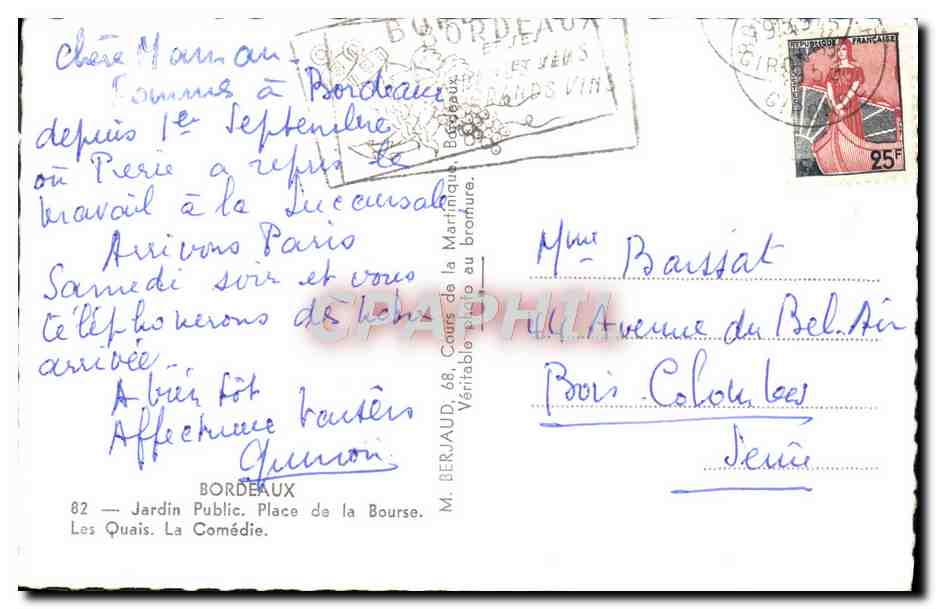 Chère Maman -
Sommes à Bordeaux
depuis 1er Septembre
où Pierre a repris le
travail à la Succursale.
Arrivons Paris
Samedi soir et vous
téléphonerons dès notre
arrivée -
A bientôt
BORDEAUX
82 — Jardin Public. Place de la Bourse.
Les Quais. La Comédie.
M. BERJAUD, 68, Cours de la Martinique, Bordeaux
Véritable photo au bromure.
BORDEAUX
ET SES
VINS
REPUBLIQUE FRANÇAISE
25F
Mme Bassat
44 Avenue du Bel-Air
Bois Colombes
Seine
CPAPHIL